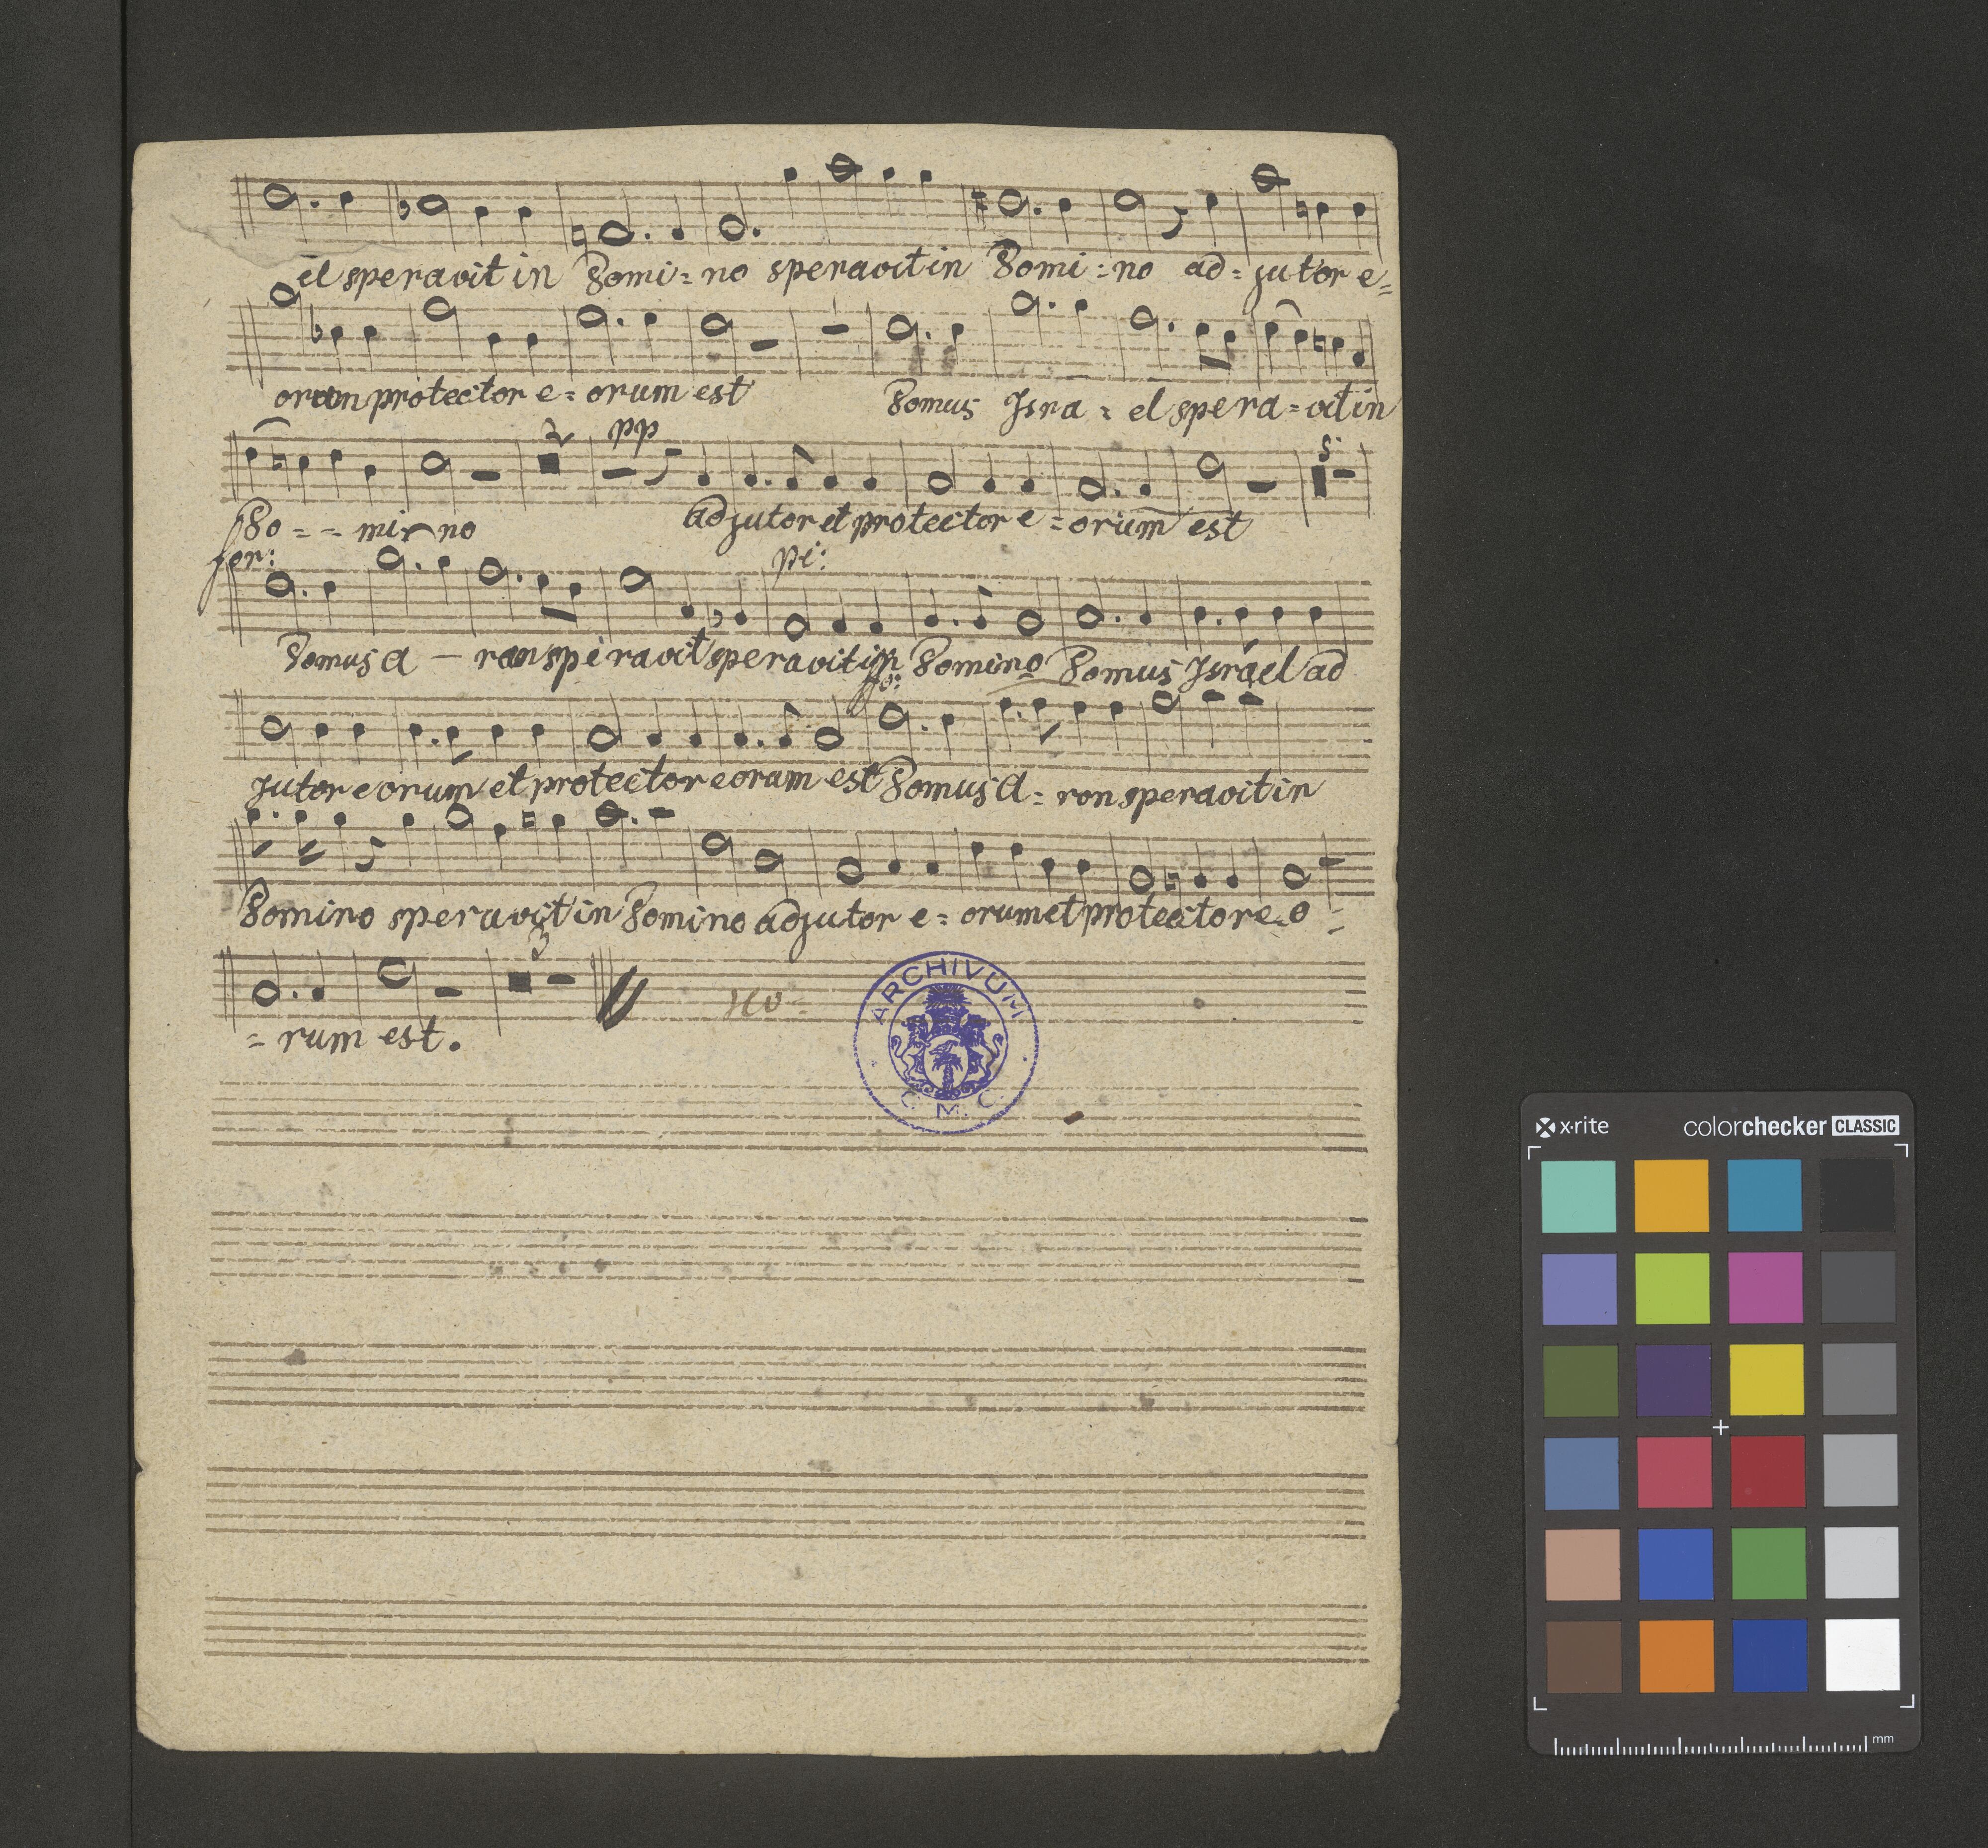 el speravit in Domi = no speravit in Domi = no ad = jutor e =
orum protector e = orum est Domus Isra = el spera = vit in
2 pp
Do = = mi no adjutor et protector e = orum est
5
for: pi:
Domus A — ron speravit speravit in Domino Domus Israel ad
fo:
jutor eorum et protector eorum est Domus A = ron speravit in
Domino speravit in Domino adjutor e = orum et protector e = o =
3
= rum est.
ARCHIVUM
C. M. C.
x·rite colorchecker CLASSIC
mm